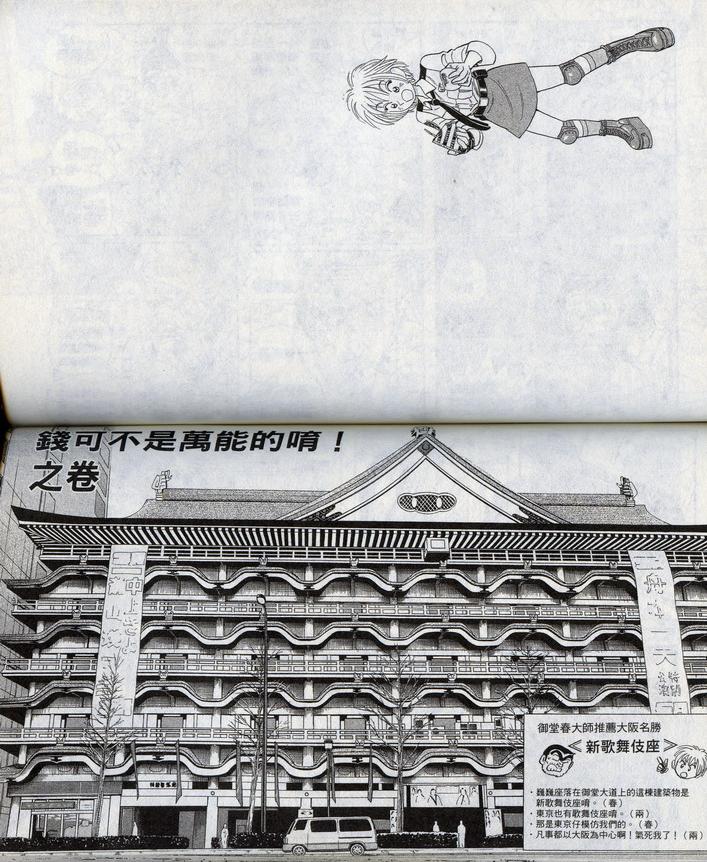 錢可不是萬能的唷！
之卷
御堂春大師推薦大阪名勝
≪新歌舞伎座≫
・巍巍座落在御堂大道上的這棟建築物是
新歌舞伎座唷。（春）
・東京也有歌舞伎座唷。（兩）
・那是東京仔模仿我們的。（春）
・凡事都以大阪為中心啊！氣死我了！（兩）